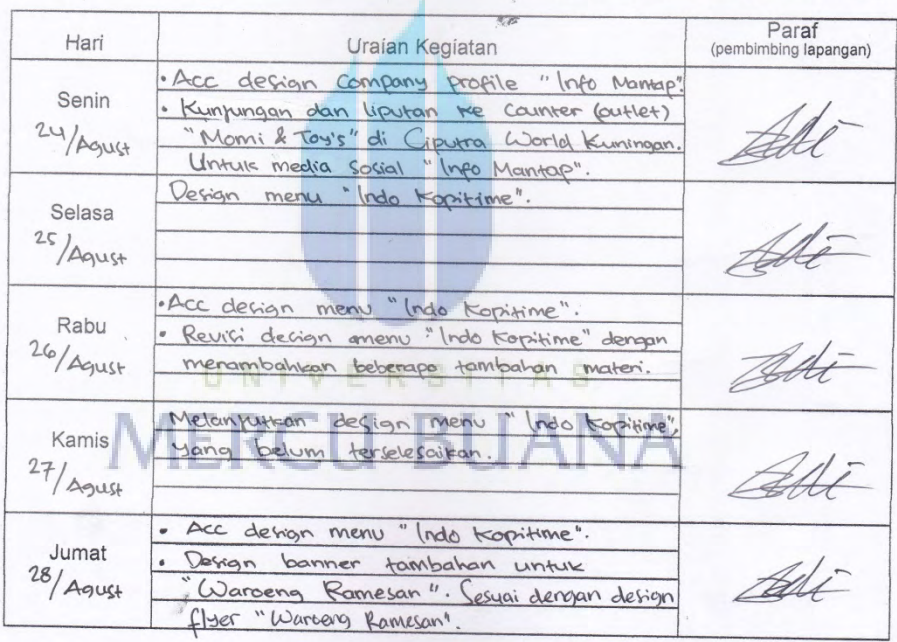 Hari
Uraian Kegiatan
Paraf
(pembimbing lapangan)
Senin
24/Agust
• Acc design company profile "Info Mantap".
• Kunjungan dan liputan ke Counter (outlet)
"Momi & Toy's" di Ciputra World Kuningan.
Untuk media sosial "Info Mantap".
Selasa
25/Agust
Design menu "Indo Kopitime".
Rabu
26/Agust
• Acc design menu "Indo Kopitime".
• Revisi design menu "Indo Kopitime" dengan
menambahkan beberapa tambahan materi.
UNIVERSITAS
MERCU BUANA
Kamis
27/Agust
Melanjutkan design menu "Indo Kopitime",
yang belum terselesaikan.
Jumat
28/Agust
• Acc design menu "Indo Kopitime".
• Design banner tambahan untuk
"Waroeng Ramesan". Sesuai dengan design
flyer "Waroeng Ramesan".